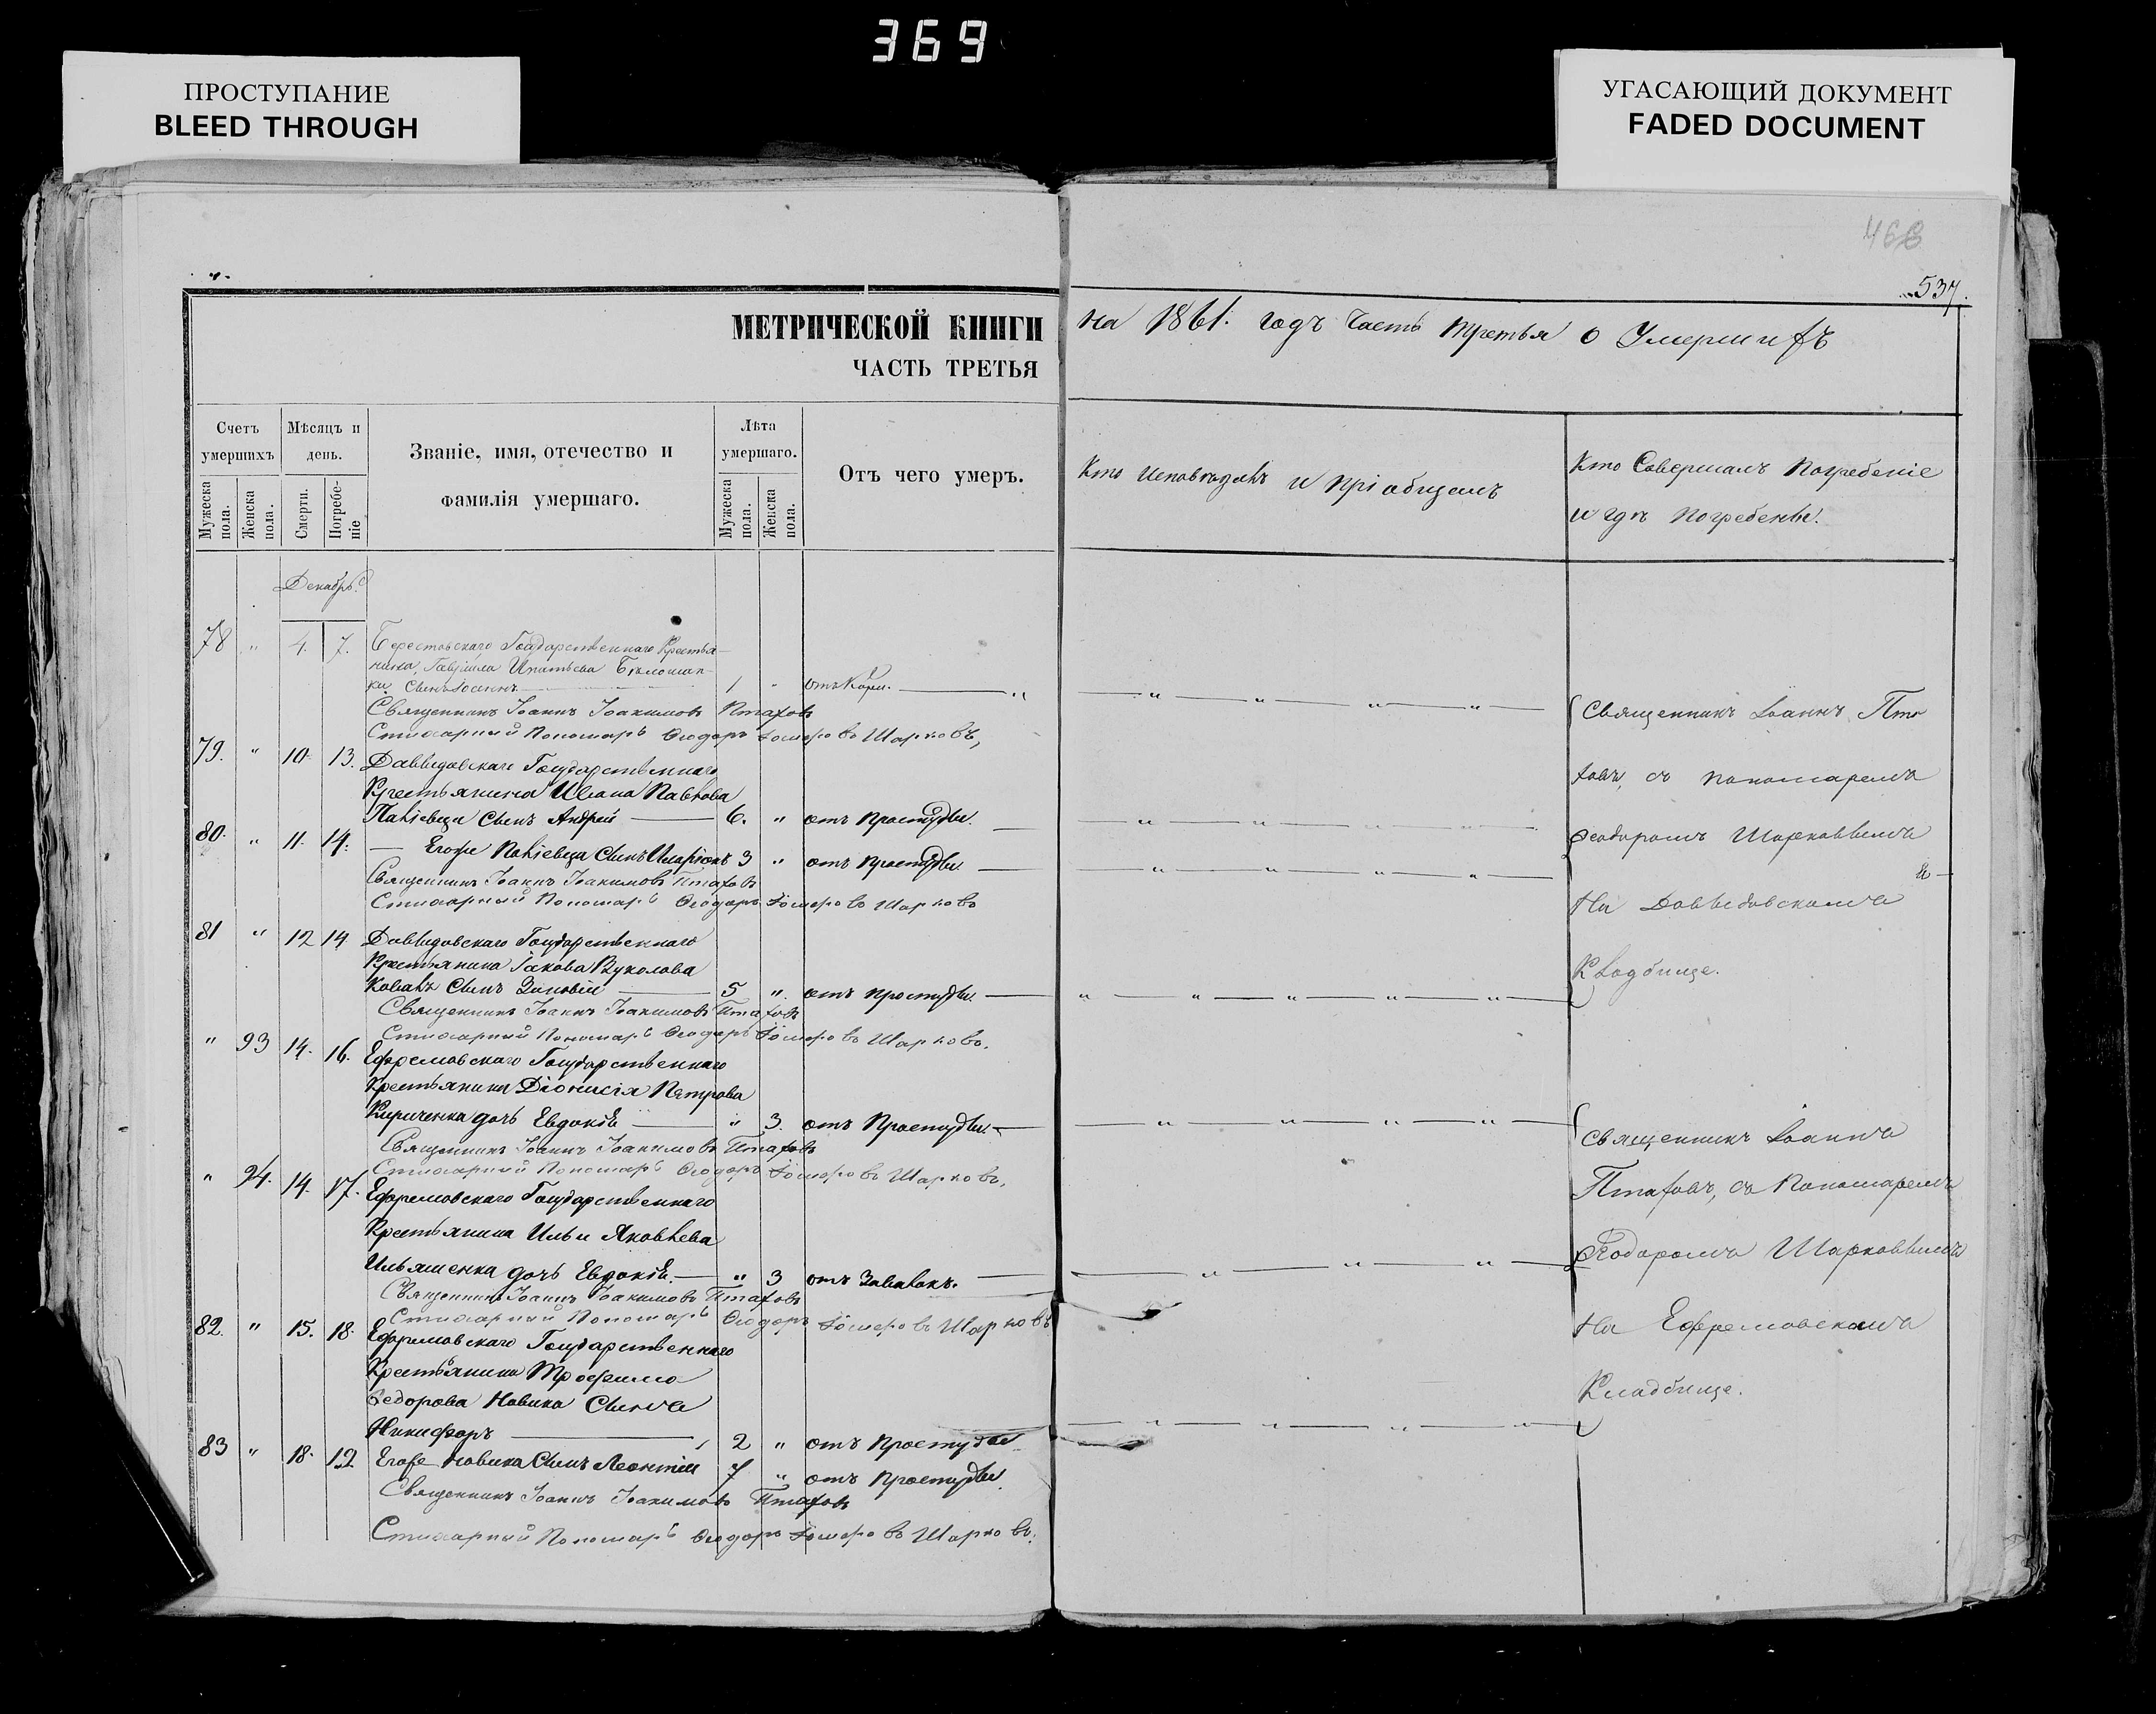 369
ПРОСТУПАНИЕ
BLEED THROUGH
УГАСАЮЩИЙ ДОКУМЕНТ
FADED DOCUMENT
466
537.
МЕТРИЧЕСКОЙ КНИГИ
ЧАСТЬ ТРЕТЬЯ
Счетъ умершихъ
Мужеска пола.
Женска пола.
Мѣсяцъ и день.
Смерти.
Погребеніе
Званіе, имя, отечество и фамилія умершаго.
Лѣта умершаго.
Мужеска пола.
Женска пола.
Отъ чего умеръ.
Декабрь
78 " 4. 7. Берестовскаго Государственнаго Крестья-
нина Гавріила Ипатьева
Сынъ 1 " отъ Кори. "
Священникъ Іоаннъ Іоакимовъ Птаховъ
Стихарный Пономарь Ѳеодоръ Шарковъ,
79. " 10 13. Давыдовскаго Государственнаго
Крестьянина Ивана Павлова
Сынъ Андрей 6. " отъ Простуды.
80. " 11. 14. Сынъ Иларіонъ 3 " отъ Простуды.
Священникъ Іоаннъ Іоакимовъ Птаховъ
Стихарный Пономарь Ѳеодоръ Шарковъ
81 " 12 14 Давыдовскаго Государственнаго
Крестьянина Іакова Вуколова
Сынъ Зиновій 5 " отъ простуды.
Священникъ Іоаннъ Іоакимовъ Птаховъ
Стихарный Пономарь Ѳеодоръ Шарковъ.
" 93 14. 16. Ефремовскаго Государственнаго
Крестьянина Діонисія Петрова
Кириченка дочь Евдокія " 3. отъ Простуды.
Священникъ Іоаннъ Іоакимовъ Птаховъ
Стихарный Пономарь Ѳеодоръ Шарковъ,
" 94. 14. 17. Ефремовскаго Государственнаго
Крестьянина Ильи Яковлева
Ильяшенка дочь Евдокія. " 3 отъ Завалокъ.
Священникъ Іоаннъ Іоакимовъ Птаховъ
Стихарный Пономарь Ѳеодоръ Шарковъ
82. " 15. 18. Ефремовскаго Государственнаго
Крестьянина Трофима
Федорова Новика Сынъ
Никифоръ 2 " отъ Простуды
83 " 18. 19 Новика Сынъ Леонтій 7 " отъ Простуды.
Священникъ Іоаннъ Іоакимовъ Птаховъ
Стихарный Пономарь Ѳеодоръ Шарковъ.
на 1861. годъ Часть третья о Умершихъ
Кто Исповѣдалъ и пріобщалъ
Кто Совершалъ Погребеніе
и гдѣ Погребены.
Священникъ Іоаннъ Пта
ховъ, съ пономаремъ
Ѳеодоромъ Шарковымъ
На Давыдовскомъ
Кладбище.
Священникъ Іоаннъ
Птаховъ, съ Пономаремъ
Ѳеодоромъ Шарковымъ
На Ефремовскомъ
Кладбище.